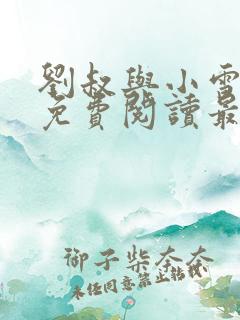 劉叔與小雪
免費閱讀最
御子柴奈奈
未经同意禁止转载